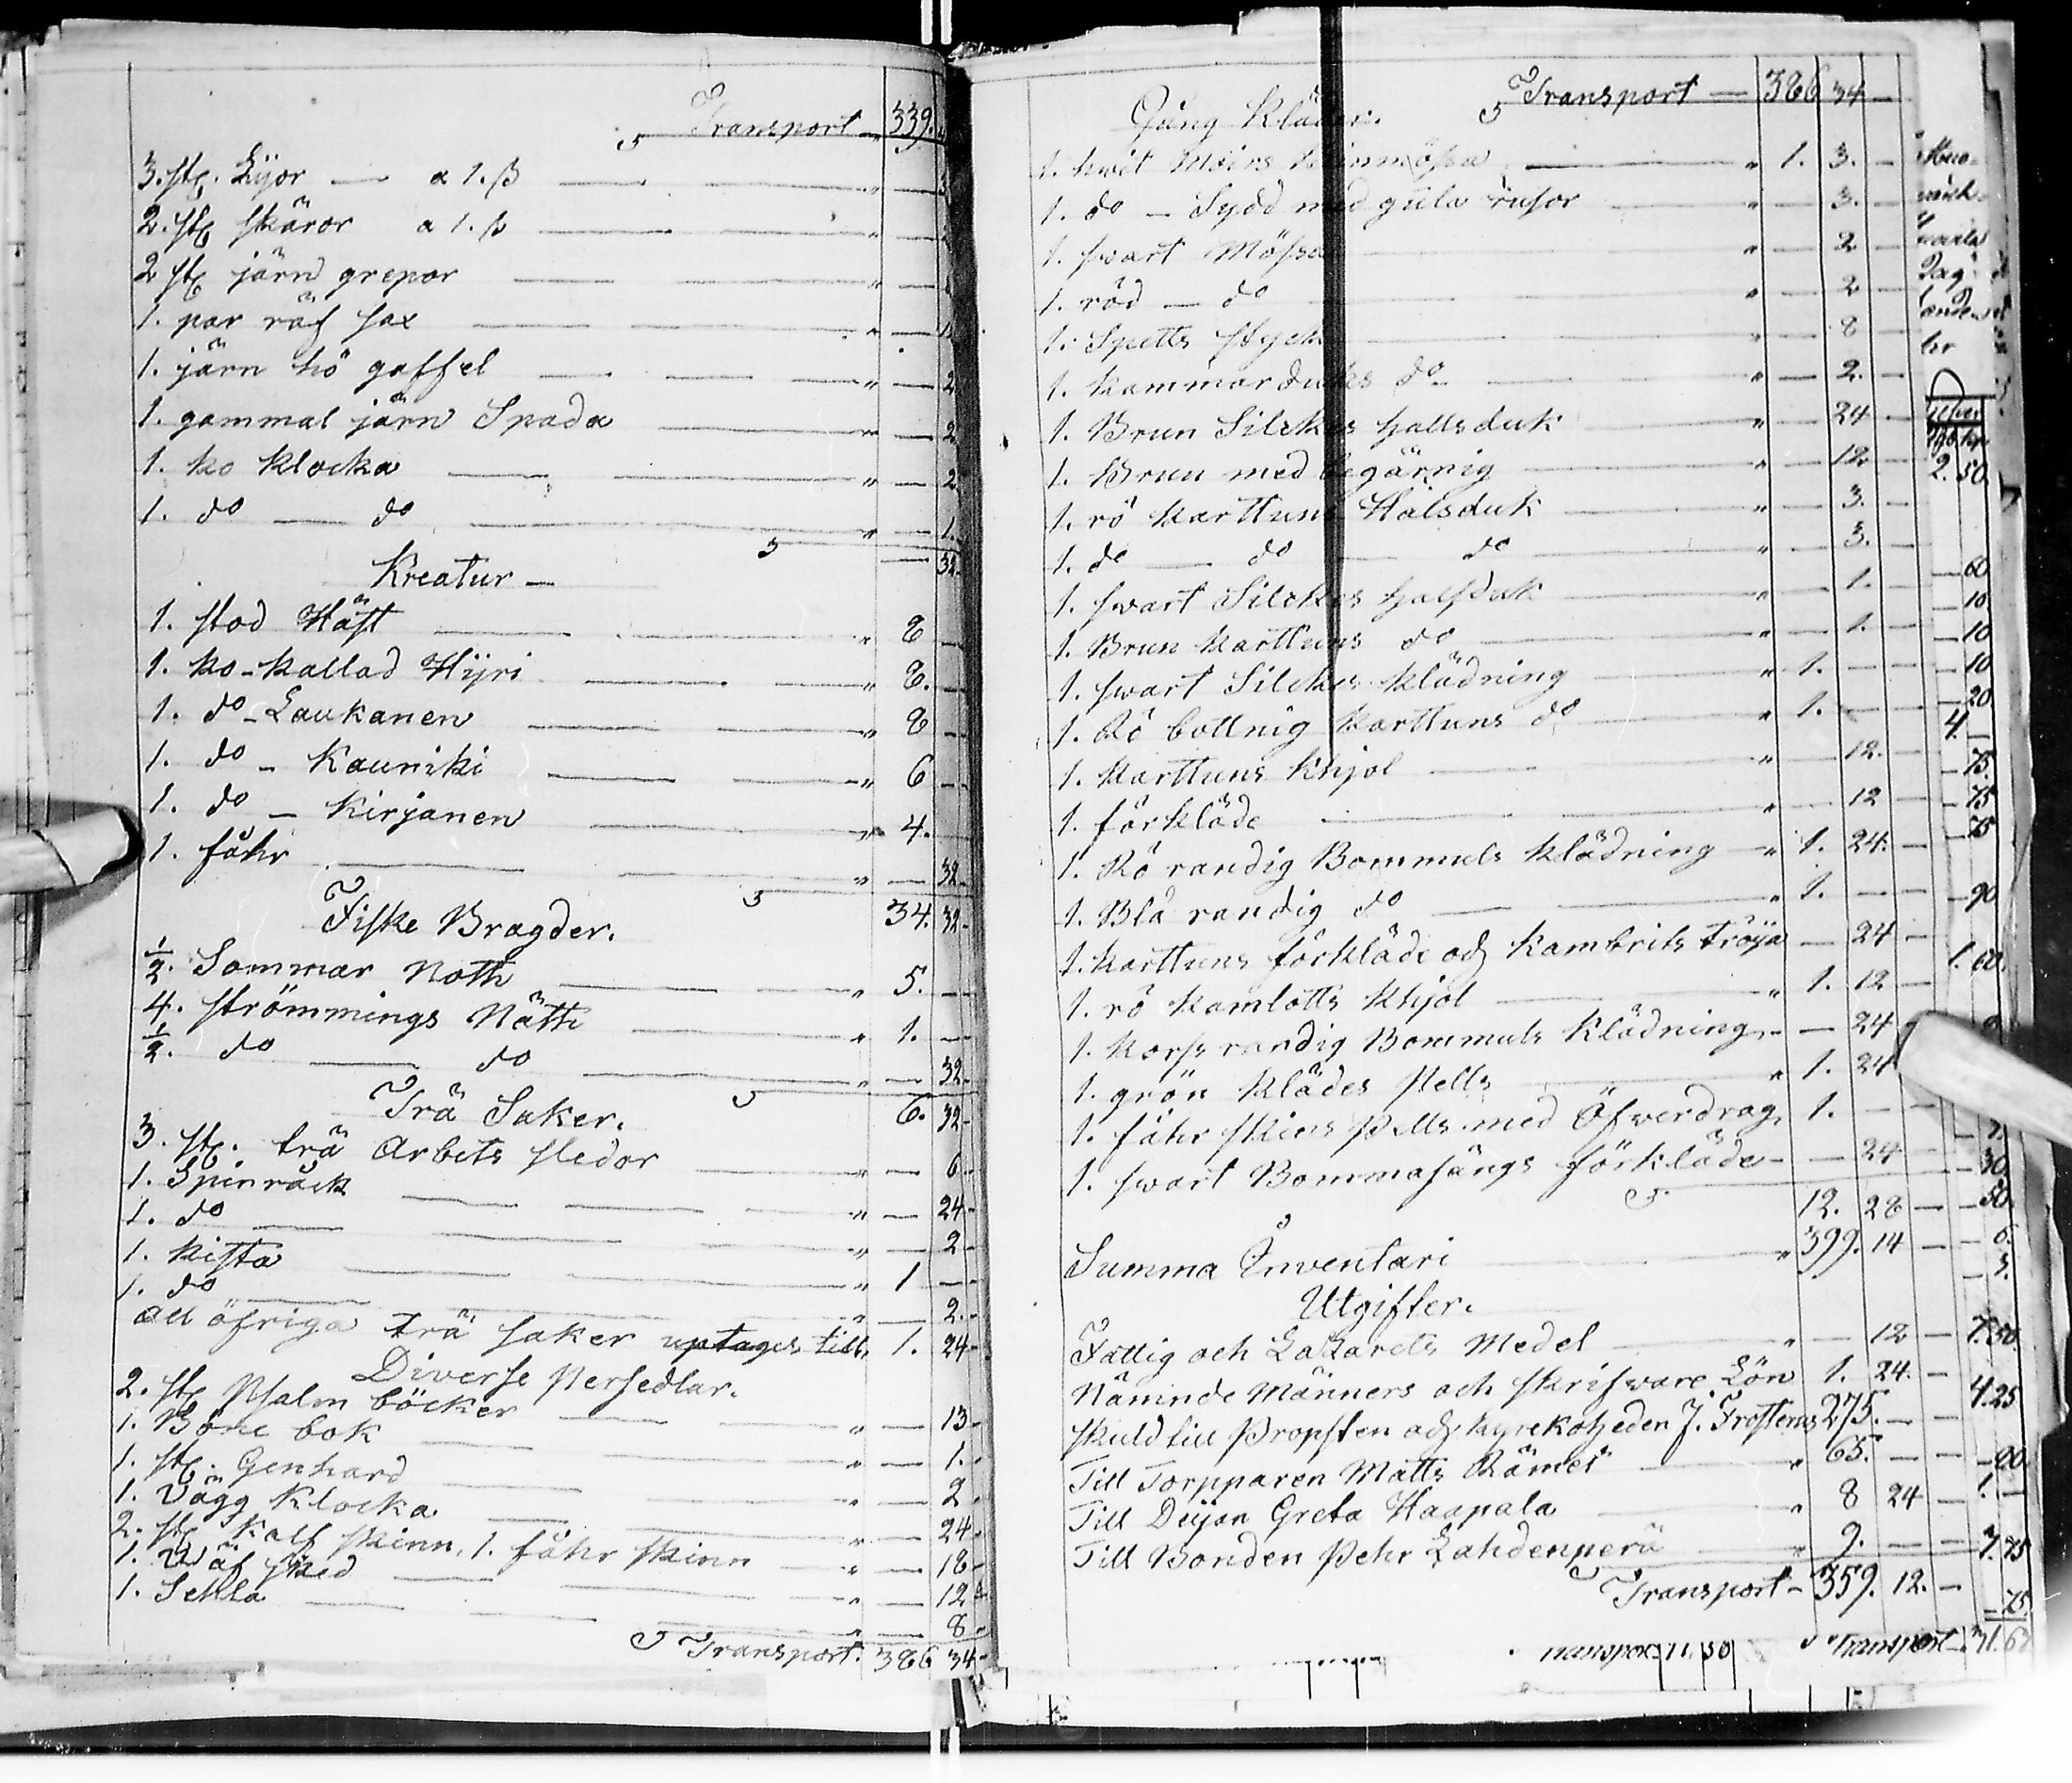 Transport 339.
3. stȩ. Lijor — a 1. ß — " — 3
2. stȩ skäror a 1. ß — " —
2 stȩ järnd grepor — " —
1. par räf sax — " — 1
1. järn hö gaffel — " — 2
1. gammal järn Spada — " — 2
1. ko klocka — " — 2
1. do — do — " — 1.
— 32.
Kreatur —
1. stod Häst — " 8 —
1. ko - kallad Hijri — " 8. —
1. do - Laukanen — " 8 —
1. do - Kauniki — " 6 —
1. do - Kirjanen — " 4.
1. fåhr — " — 32.
34. 32.
Fiske Bragder.
1/2. Sommar Noth — " 5. —
4. strömmings Näth — " 1. —
1/2. do — do — " — 32.
6. 32.
Trä Saker.
3. stȩ. trä Arbets sledor — " — 6.
1. Spinråck — " — 24.
1. do — " — 2.
1. kista — " 1 —
1. do — " — 2.
all öfriga trä saker uptages till. 1. 24.
Diverse Persedlar.
2. stȩ Psalm böcker — " — 13.
1. Böne bok — " — 1.
1. stȩ. Genhard — " — 2.
1. Vägg Klocka — " — 24.
2. stȩ Kalf skinn, 1. fåhr skinn — " — 18.
1. Wäf sked — " — 12.
1. Sekta — " — 8.
Transport. 386 34.
Transport — 386 34 —
Gång Kläder.
1. hwit Moirs Kinmössa — " 1. 3. —
1. do — Sydd med gula rusor — " — 3. —
1. swart Mössa — " — 2 —
1. röd — do — " — 2 —
1. Spetts styck — " — 8 —
1. Kammarduks do — " — 2. —
1. Brun Silckes hallsduk — " — 24 —
1. Brun med begärnig — " — 12 —
1. rö karttuns Halsduk — " — 3. —
1. do — do — do — " — 3. —
1. swart Silckes halsduk — " — 1. —
1. Brun Karttuns do — " — 1. —
1. swart Silckes klädning — " 1. — —
1. Rö bottnig Karttuns do — " 1. — —
1. Karttuns Khjol — " — 12. —
1. förkläde — " — 12 —
1. Rö randig Bommuls klädning — " 1. 24. —
1. Blå randig do — " 1. — —
1. Karttuns förkläde och Kambrits tröja — 24 —
1. rö Kamlotts Khjol — " 1. 12 —
1. Korss randig Bommuls Klädning — — 24
1. grön klädes Pells — " 1. 24
1. fåhr skins Pells med Öfverdrag 1. — —
1. swart Bommasängs förkläde — — 24
12. 28 —
Summa Inventari " 399. 14 —
Utgifter.
Fattig och Lazarets Medel — " — 12 —
Nämnde Männers och skrifware Lön 1. 24. —
skuld till Propsten och Kyrckoheden J. Frosterus 275. — —
Till Torpparen Matts Rämet — " 65. — —
Till Deijan Greta Haapala — " 8 24 —
Till Bonden Pehr Lahdenperä — " 9. — —
Transport — 359. 12. —
2. 50
60
10
10
10
20
4. —
75.
75
75
90
1. 60.
30
50
6.
3.
7. 50.
4. 25
90
1. —
7. 75
75.
transport 11. 50
Transport 31. 60